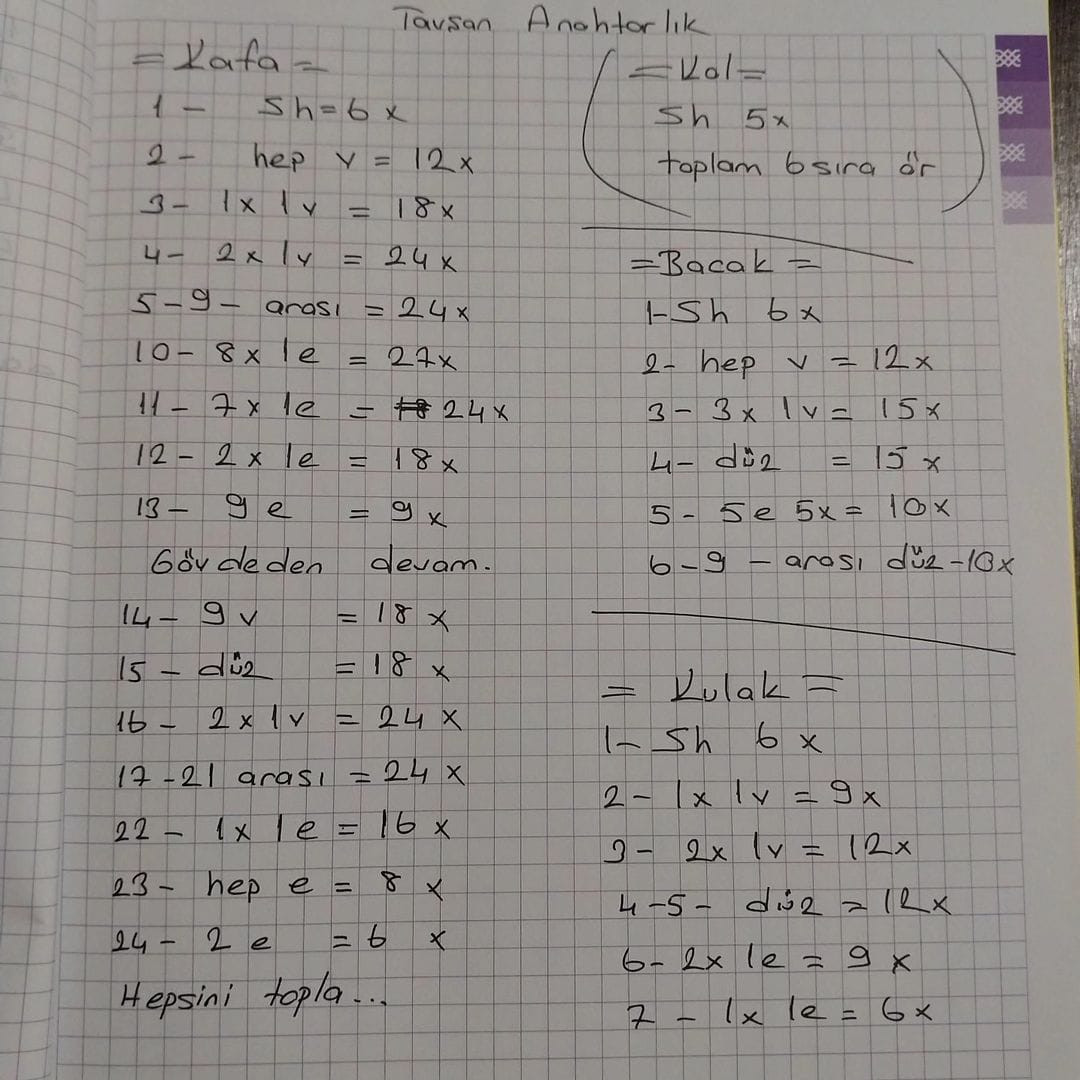 Tavşan Anahtarlık
= Kafa =
1 - Sh = 6 x
2 - hep v = 12 x
3 - 1x 1v = 18 x
4 - 2x 1v = 24 x
5 - 9 - arası = 24 x
10 - 8x 1e = 27x
11 - 7x 1e = 24 x
12 - 2x 1e = 18 x
13 - 9 e = 9 x
Gövdeden devam.
14 - 9 v = 18 x
15 - düz = 18 x
16 - 2x 1v = 24 x
17 - 21 arası = 24 x
22 - 1x 1e = 16 x
23 - hep e = 8 x
24 - 2 e = 6 x
Hepsini topla...
= Kol =
Sh 5x
toplam 6 sıra ör
= Bacak =
1- Sh 6 x
2- hep v = 12 x
3 - 3x 1v = 15 x
4 - düz = 15 x
5 - 5e 5x = 10x
6 - 9 - arası düz - 10x
= Kulak =
1- Sh 6 x
2 - 1x 1v = 9x
3 - 2x 1v = 12x
4 - 5 - düz = 12x
6 - 2x 1e = 9 x
7 - 1x 1e = 6x